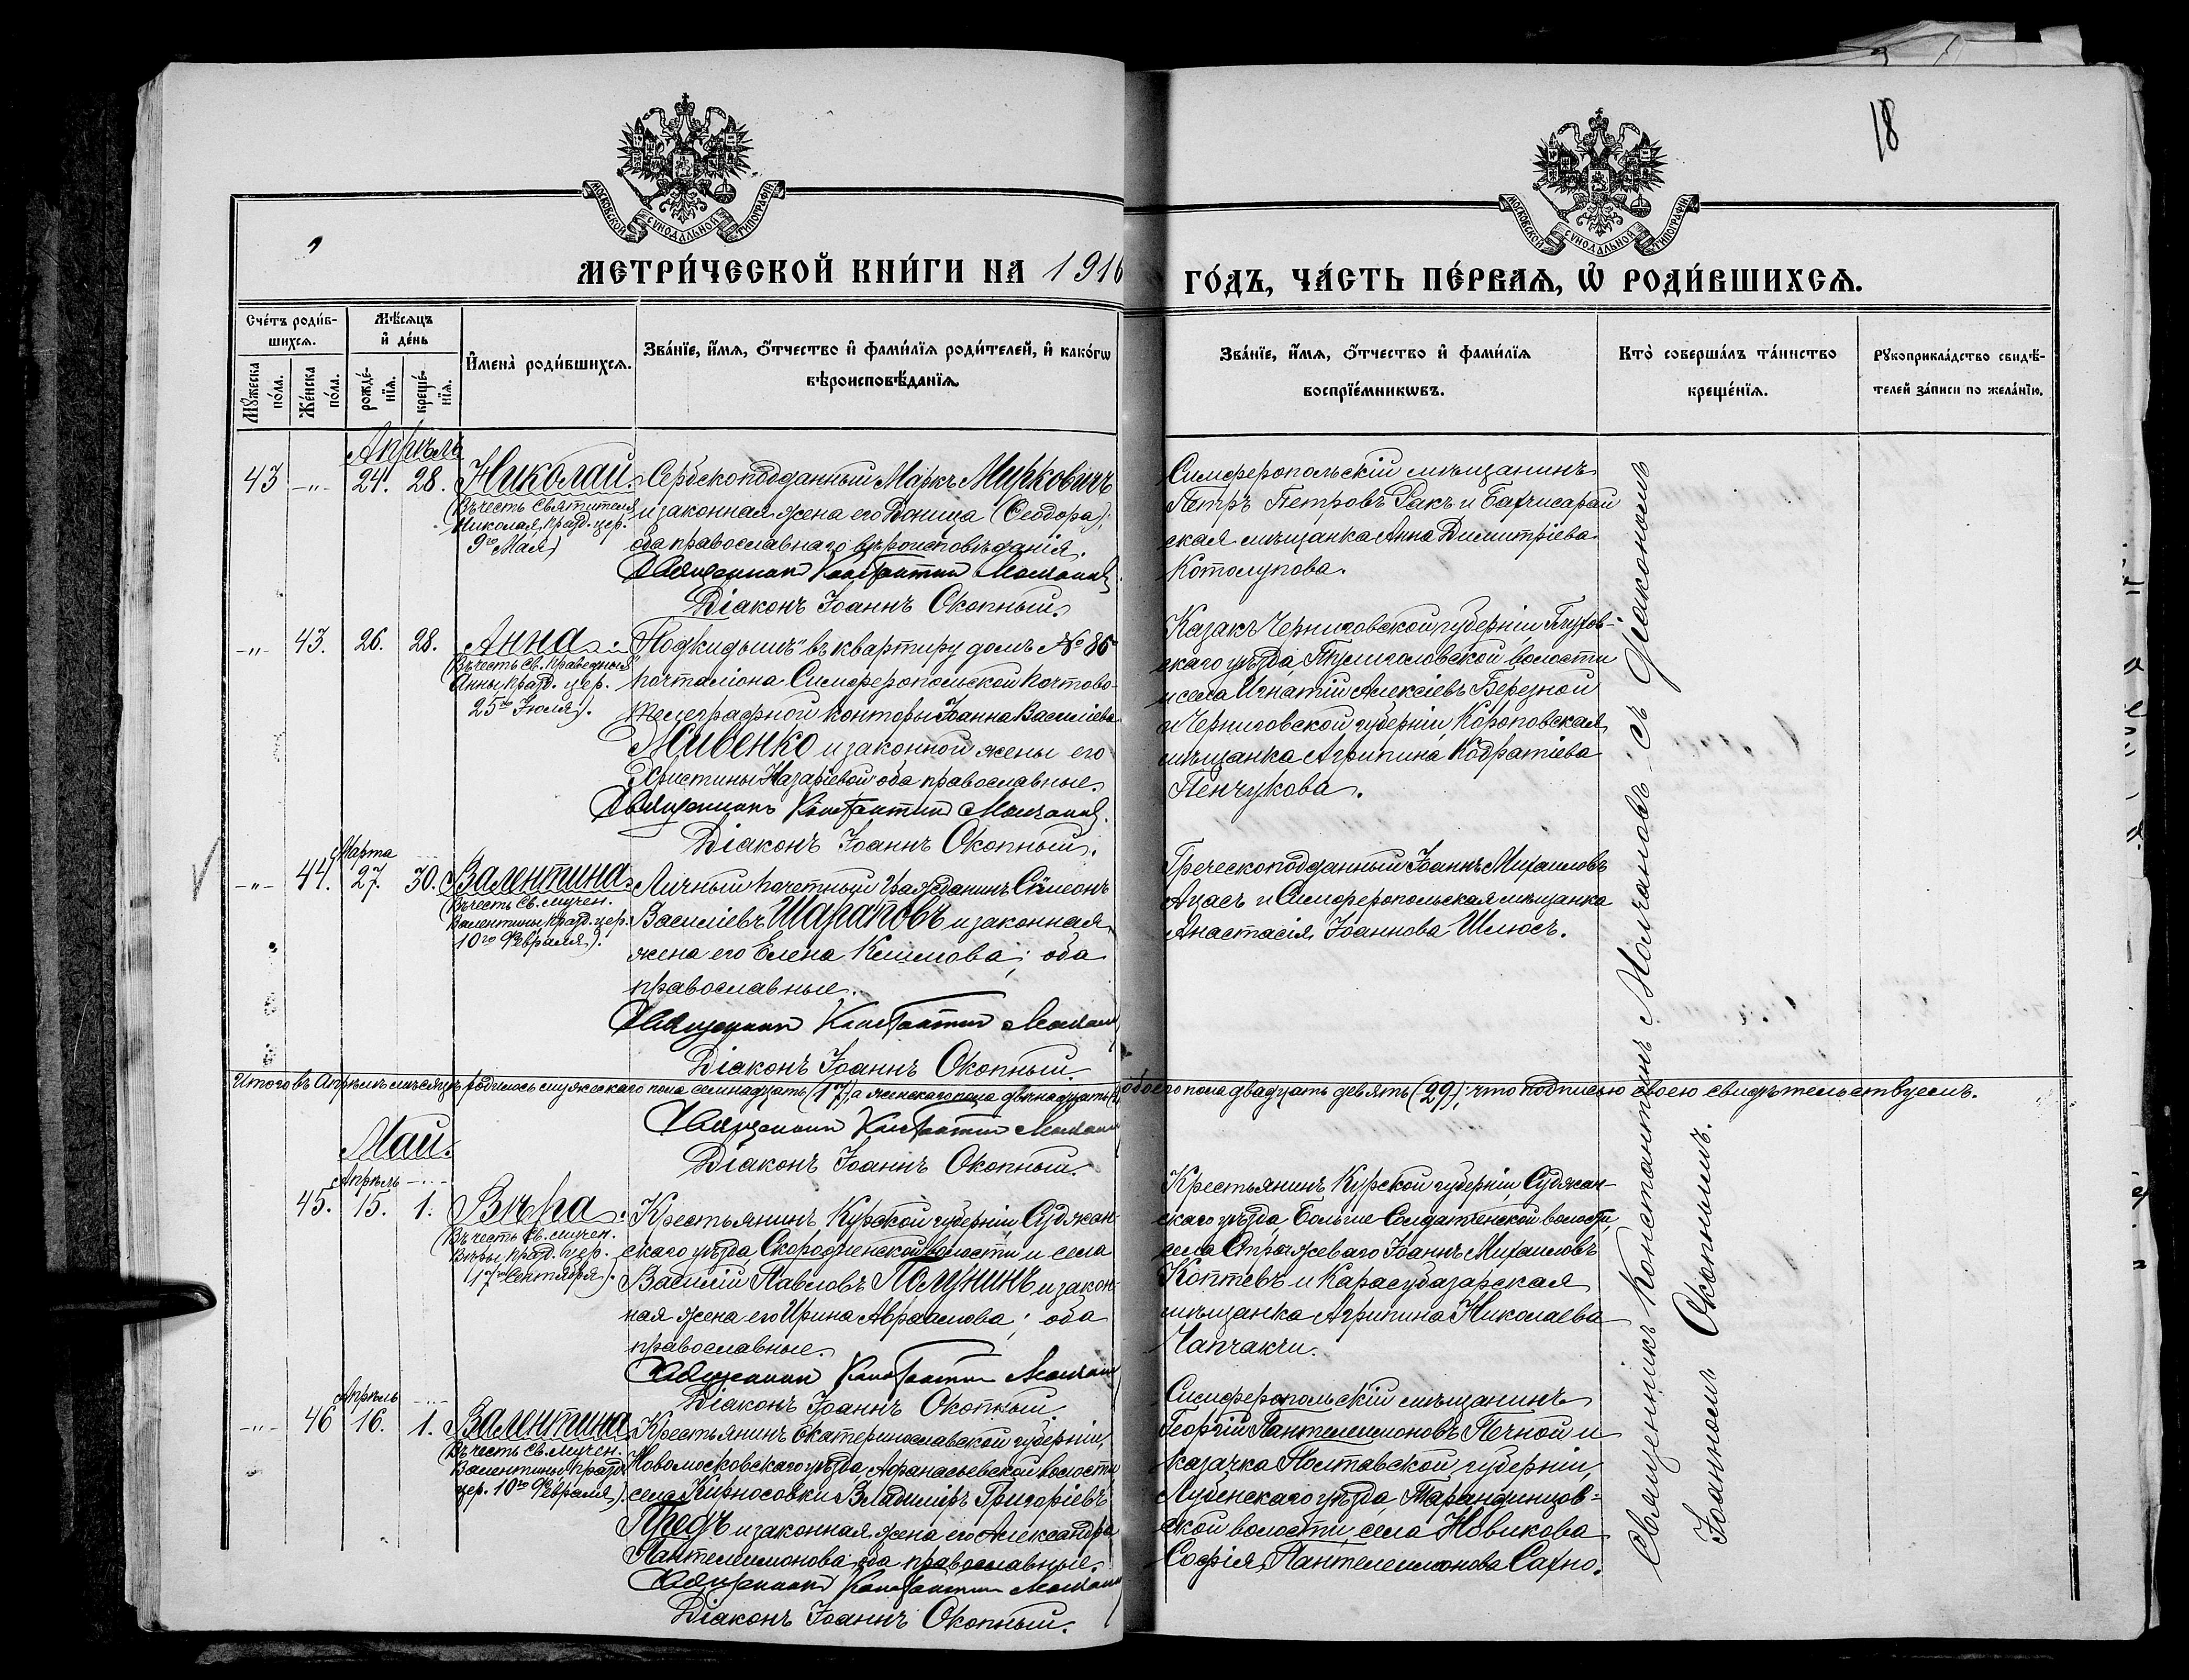 18
МОСКОВСКОЙ СѴНОДАЛЬНОЙ ТИПОГРАФІИ
МОСКОВСКОЙ СѴНОДАЛЬНОЙ ТИПОГРАФІИ
МЕТРИ́ЧЕСКОЙ КНИ́ГИ НА 1916
ГО́ДЪ, ЧА́СТЬ ПЕ́РВАѦ, Ѡ҆ РОДИ́ВШИХСѦ.
Сче́тъ роди́в-
шихсѧ.
Мꙋ́жеска по́ла.
Же́нска по́ла.
Мѣ́сѧцъ
и҆ де́нь
рожде́-нїѧ.
креще́-нїѧ.
И҆мена̀ роди́вшихсѧ.
Зва́нїе, и҆́мѧ, ѻ҆́тчество и҆ фами́лїѧ роди́телей, и҆ како́гѡ
вѣроисповѣ́данїѧ.
Зва́нїе, и҆́мѧ, ѻ҆́тчество и҆ фами́лїѧ
воспрїе́мникѡвъ.
Кто̀ соверша́лъ та́инство
креще́нїѧ.
Рꙋкоприкла́дство свидѣ́-
телей за́писи по жела́нїю.
Апрѣль
43 -"- 24. 28. Николай.
(Въ честь Святителя
Николая, празд. цер.
9го Мая)
Сербскоподданный Маркъ Мирковичъ
и законная жена его Даница (Ѳеодора);
оба православнаго вѣроисповѣданія.
Священникъ Константинъ Молчановъ
Діаконъ Іоаннъ Окопный.
Симферопольскій мѣщанинъ
Петръ Петровъ Гакъ и Бахчисарай
ская мѣщанка Анна Димитріева
Котолупова.
-"- 43. 26. 28. Анна
(Въ честь Св. праведной
Анны, празд. цер.
25го Іюля).
"Подкидышъ" въ квартиру домъ № 86
почталіона Симферопольской почтово-
телеграфной конторы Іоанна Василіева
Живенко и законной жены его
Христины Назаріевой; оба православные.
Священникъ Константинъ Молчановъ.
Діаконъ Іоаннъ Окопный.
Казакъ Черниговской губерніи Глухов-
скаго уѣзда, Тулиголовской волости
и села Игнатій Алексіевъ Березной
и Черниговской губерніи, Короповская
мѣщанка Агрипина Кодратіева
Пенчукова.
Марта
-"- 44. 27. 30. Валентина.
(Въ честь Св. мучен.
Валентины, празд. цер.
10го Февраля).
Личный почетный гражданинъ Сѵмеонъ
Василіевъ Шараповъ и законная
жена его Елена Климова; оба
православные.
Священникъ Константинъ Молчановъ
Діаконъ Іоаннъ Окопный.
Греческоподданный Іоаннъ Михаиловъ
Ацасъ и Симферопольская мѣщанка
Анастасія Іоаннова Шлюсъ.
Итого въ Апрѣлѣ мѣсяцѣ родилось мужескаго пола семнадцать (17), а женскаго пола двѣнадцать (12), обоего пола двадцать девять (29); что подписью своею свидѣтельствуемъ.
Священникъ Константинъ Молчановъ
Діаконъ Іоаннъ Окопный.
Май.
Апрѣль
45. 15. 1. Вѣра.
(Въ честь Св. мучен.
Вѣры, празд. цер.
17го Сентября).
Крестьянинъ Курской губерніи, Суджан-
скаго уѣзда, Скородненской волости и села
Василій Павловъ Полунинъ и закон-
ная жена его Ирина Авраамова; оба
православные.
Священникъ Константинъ Молчановъ
Діаконъ Іоаннъ Окопный.
Крестьянинъ Курской губерніи, Суджан-
скаго уѣзда, Больше Солдатенской волости,
села Іоаннъ Михаиловъ
Коптевъ и Карасубазарская
мѣщанка Агрипина Николаева
Чапчакчи.
Апрѣль
-"- 46 16. 1. Валентина
(Въ честь Св. мучен.
Валентины, празд.
цер. 10го Февраля).
Крестьянинъ Екатеринославской губерніи,
Новомосковскаго уѣзда, Афанасьевской волости
села Кирносовки Владиміръ Григоріевъ
Предъ и законная жена его Александра
Пантелеимонова, оба православные.
Священникъ Константинъ Молчановъ
Діаконъ Іоаннъ Окопный.
Симферопольскій мѣщанинъ
Георгій Пантелеимоновъ Печной и
казачка Полтавской губерніи,
Лубенскаго уѣзда, Тарандинцов-
ской волости, села Новикова
Софія Пантелеимонова Сахно.
Священникъ Константинъ Молчановъ съ Діакономъ
Іоанномъ Окопнымъ.